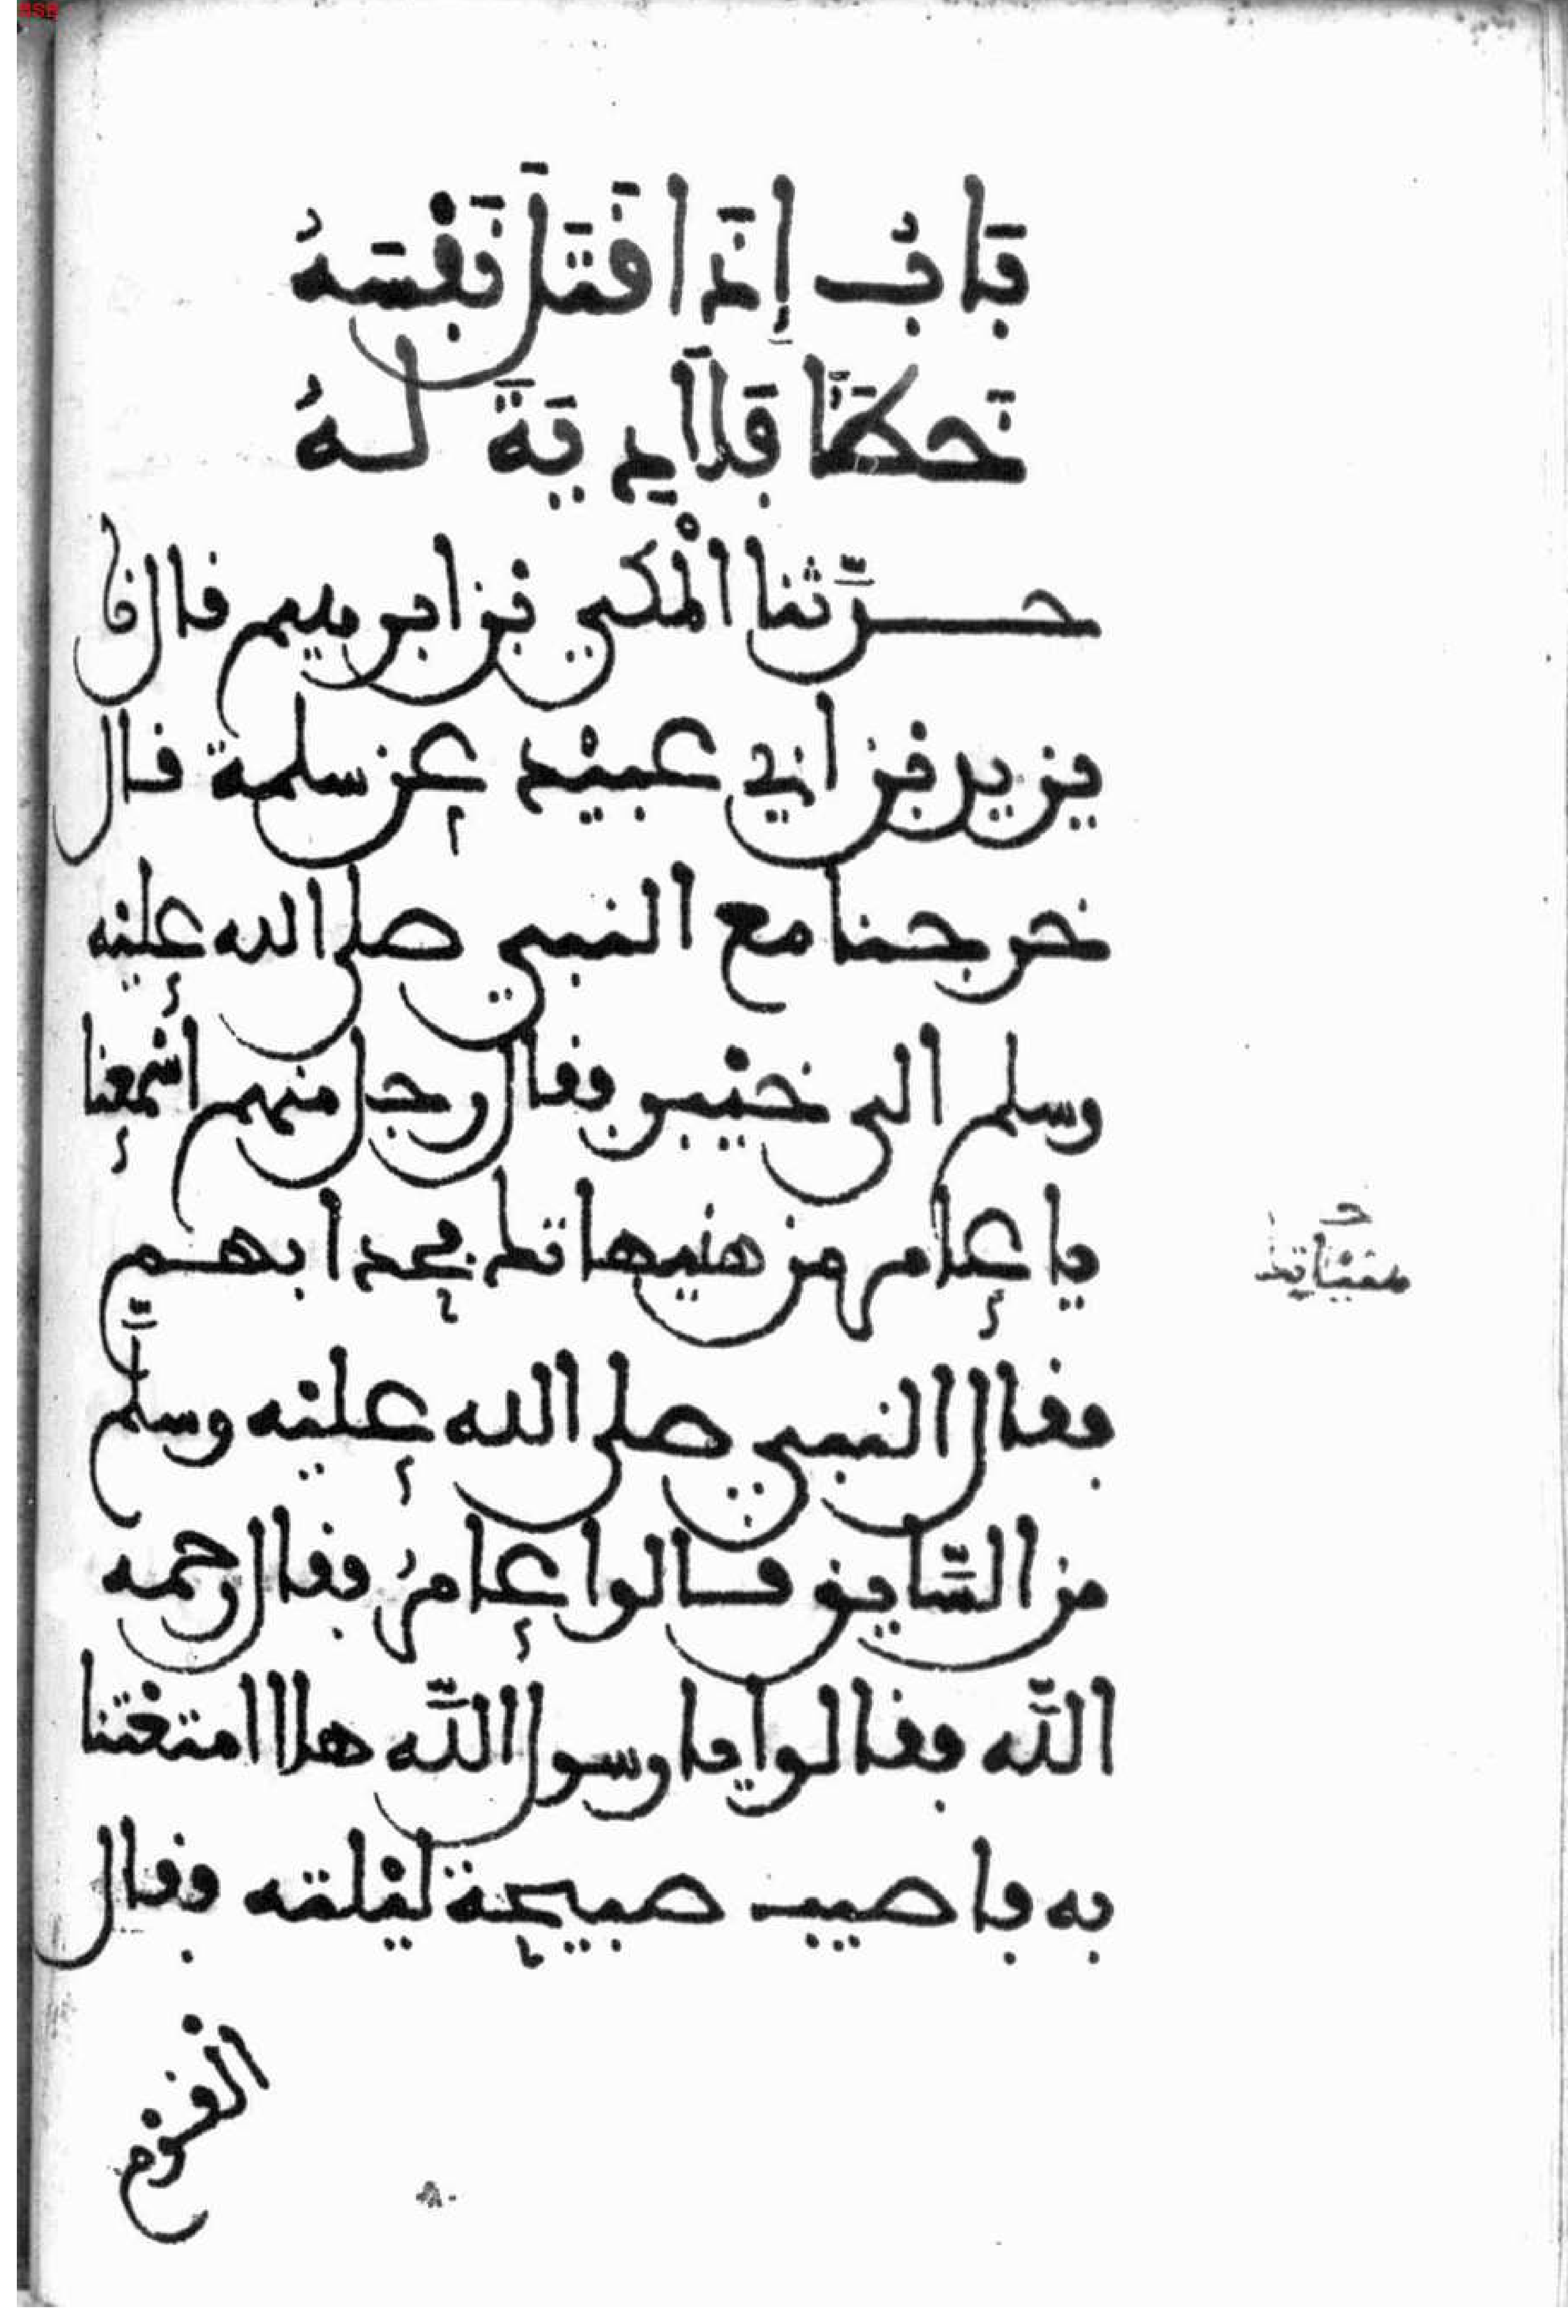 بَابُ إِذَا قَتَلَ نَفْسَهُ
خَطَأً فَلَا دِيَةَ لَهُ
حدّثنا الْمكي بن ابرهيم قال نا
يزيد بن ابي عبيْد عن سلمة قال
خرجنا مع النبي صلى الله عليْه
وسلم الى خيْبر فقال رجل منهم اسْمعنا
يا عامر من هنيهاتك فحدا بهم
فقال النبي صلى الله عليْه وسلَّم
من السَّايق قالوا عامرُ فقال رحمه
اللَّه فقالوا يا رسول اللَّه هلا امتعْتنا
به فاصيب صبيحة ليْلته فقال
الْقوْم
هنيْاتك
٨٠